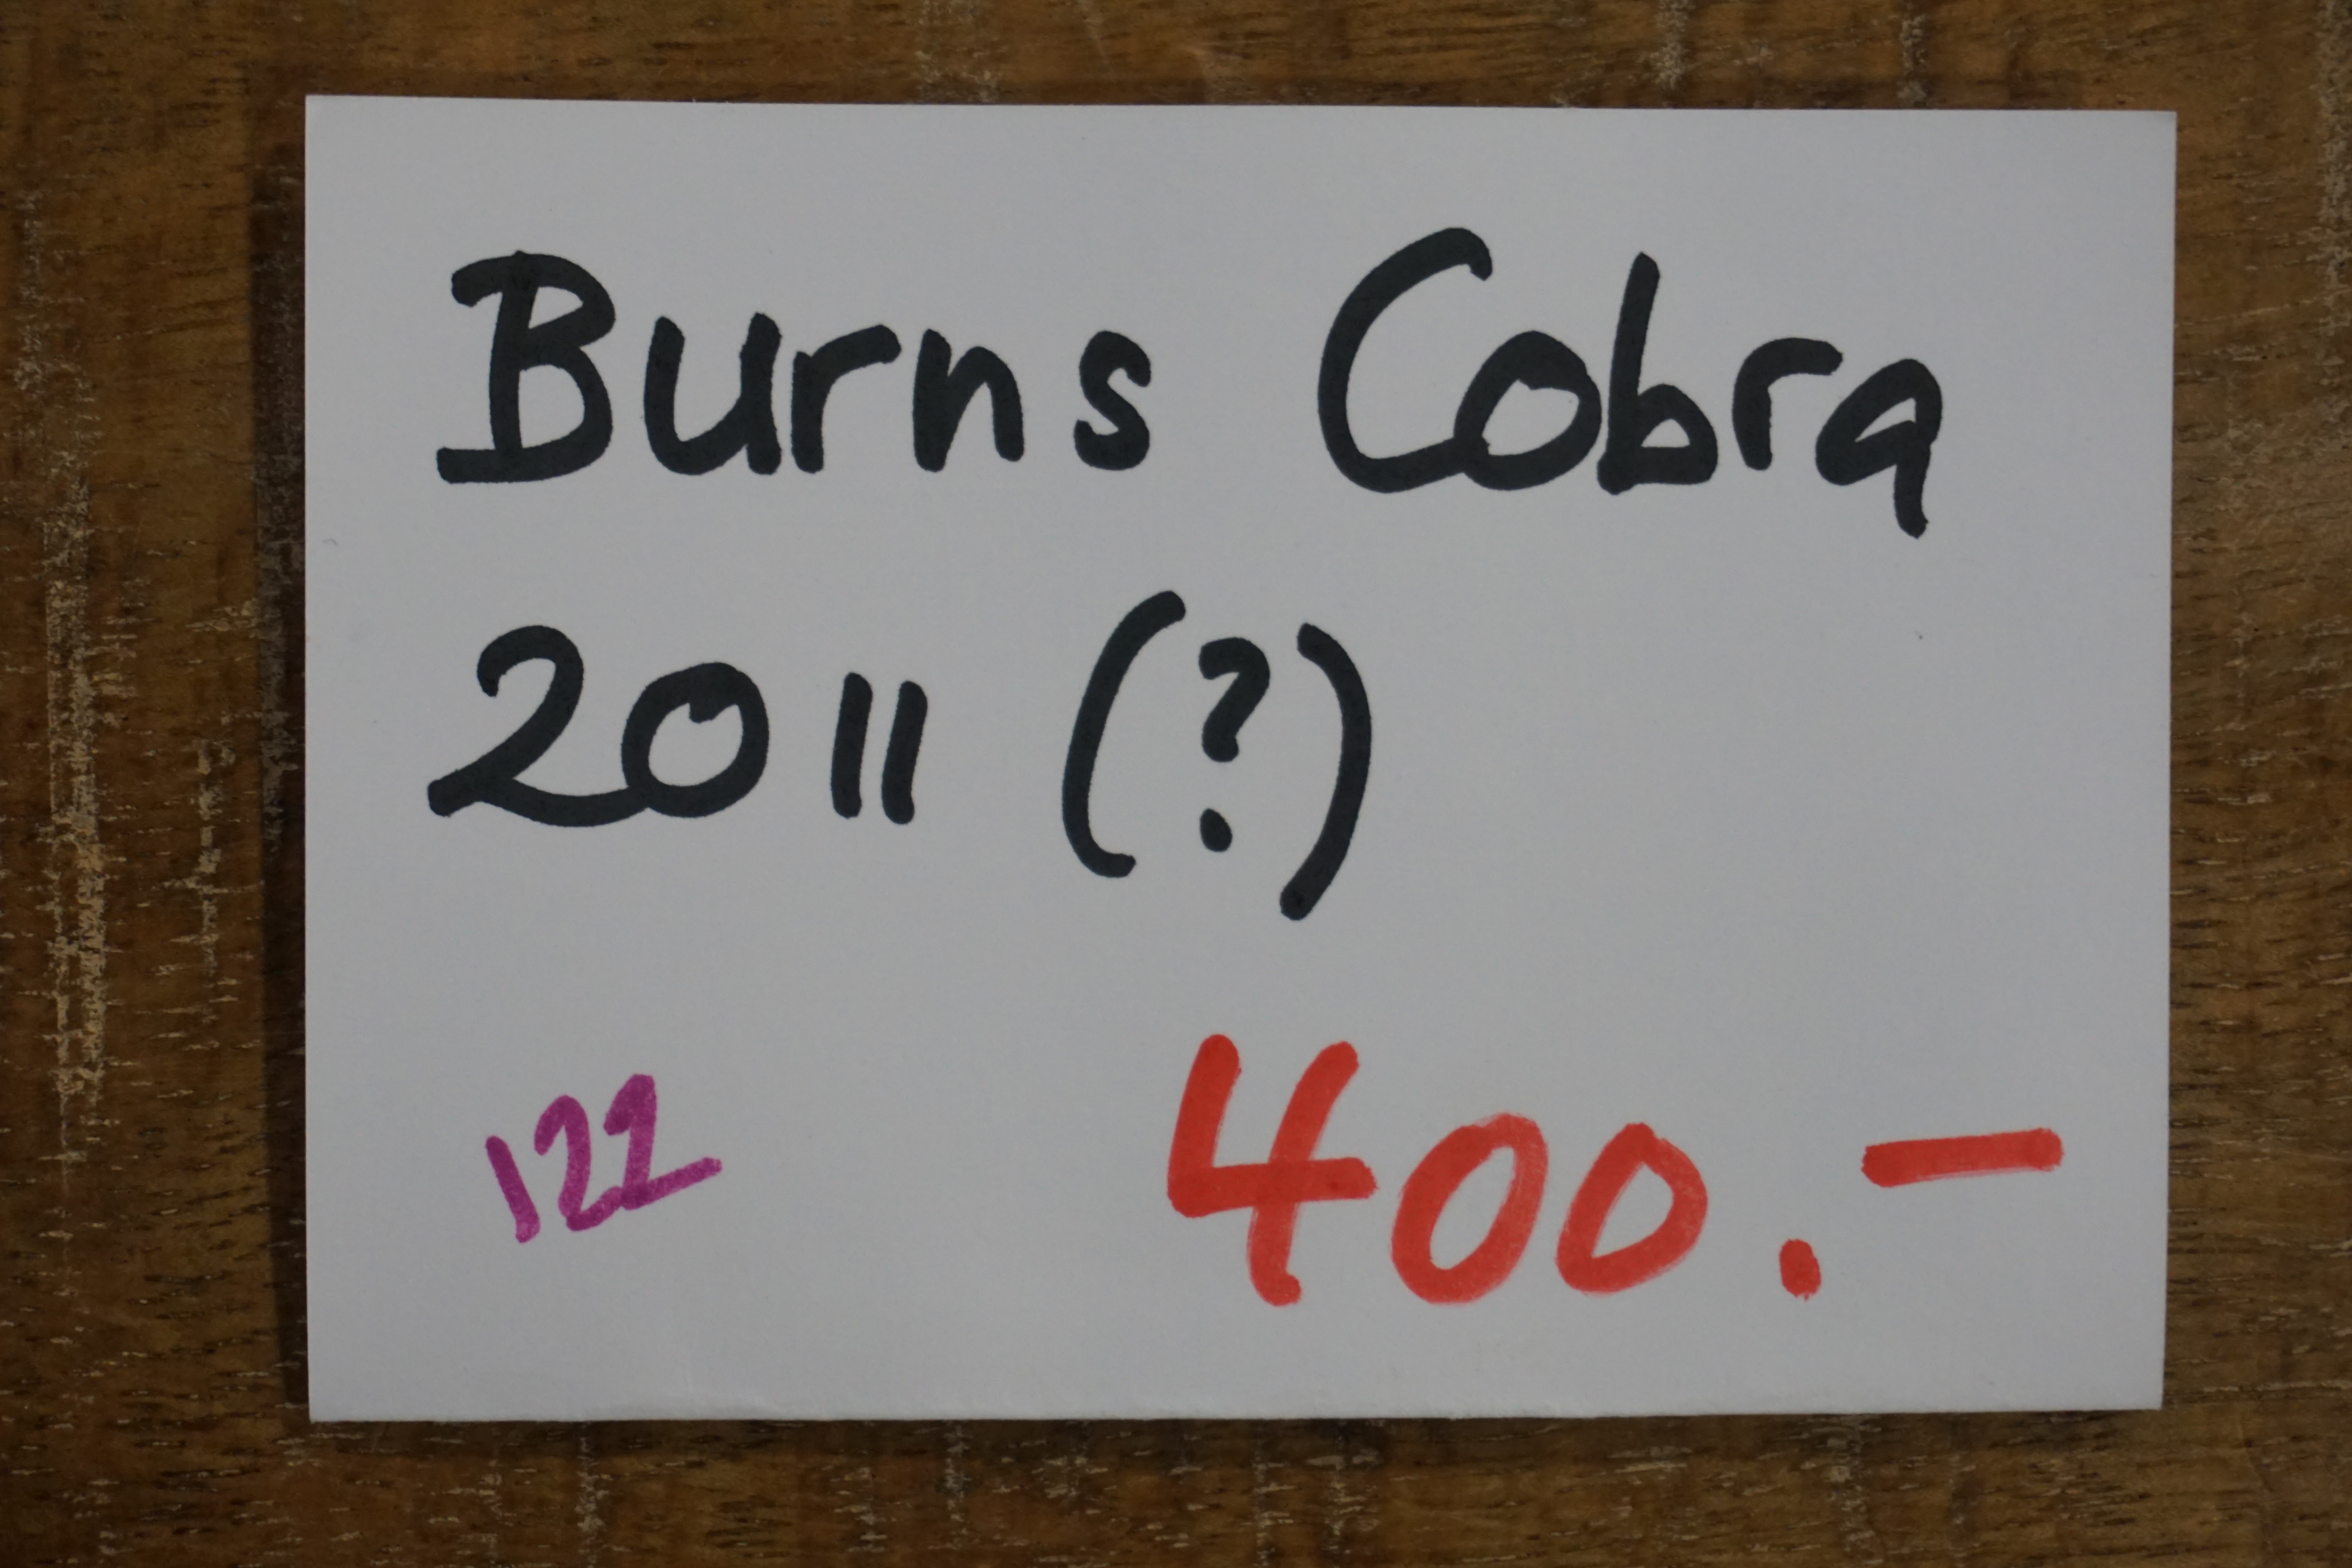 Burns Cobra
2011 (?)
122
400.-